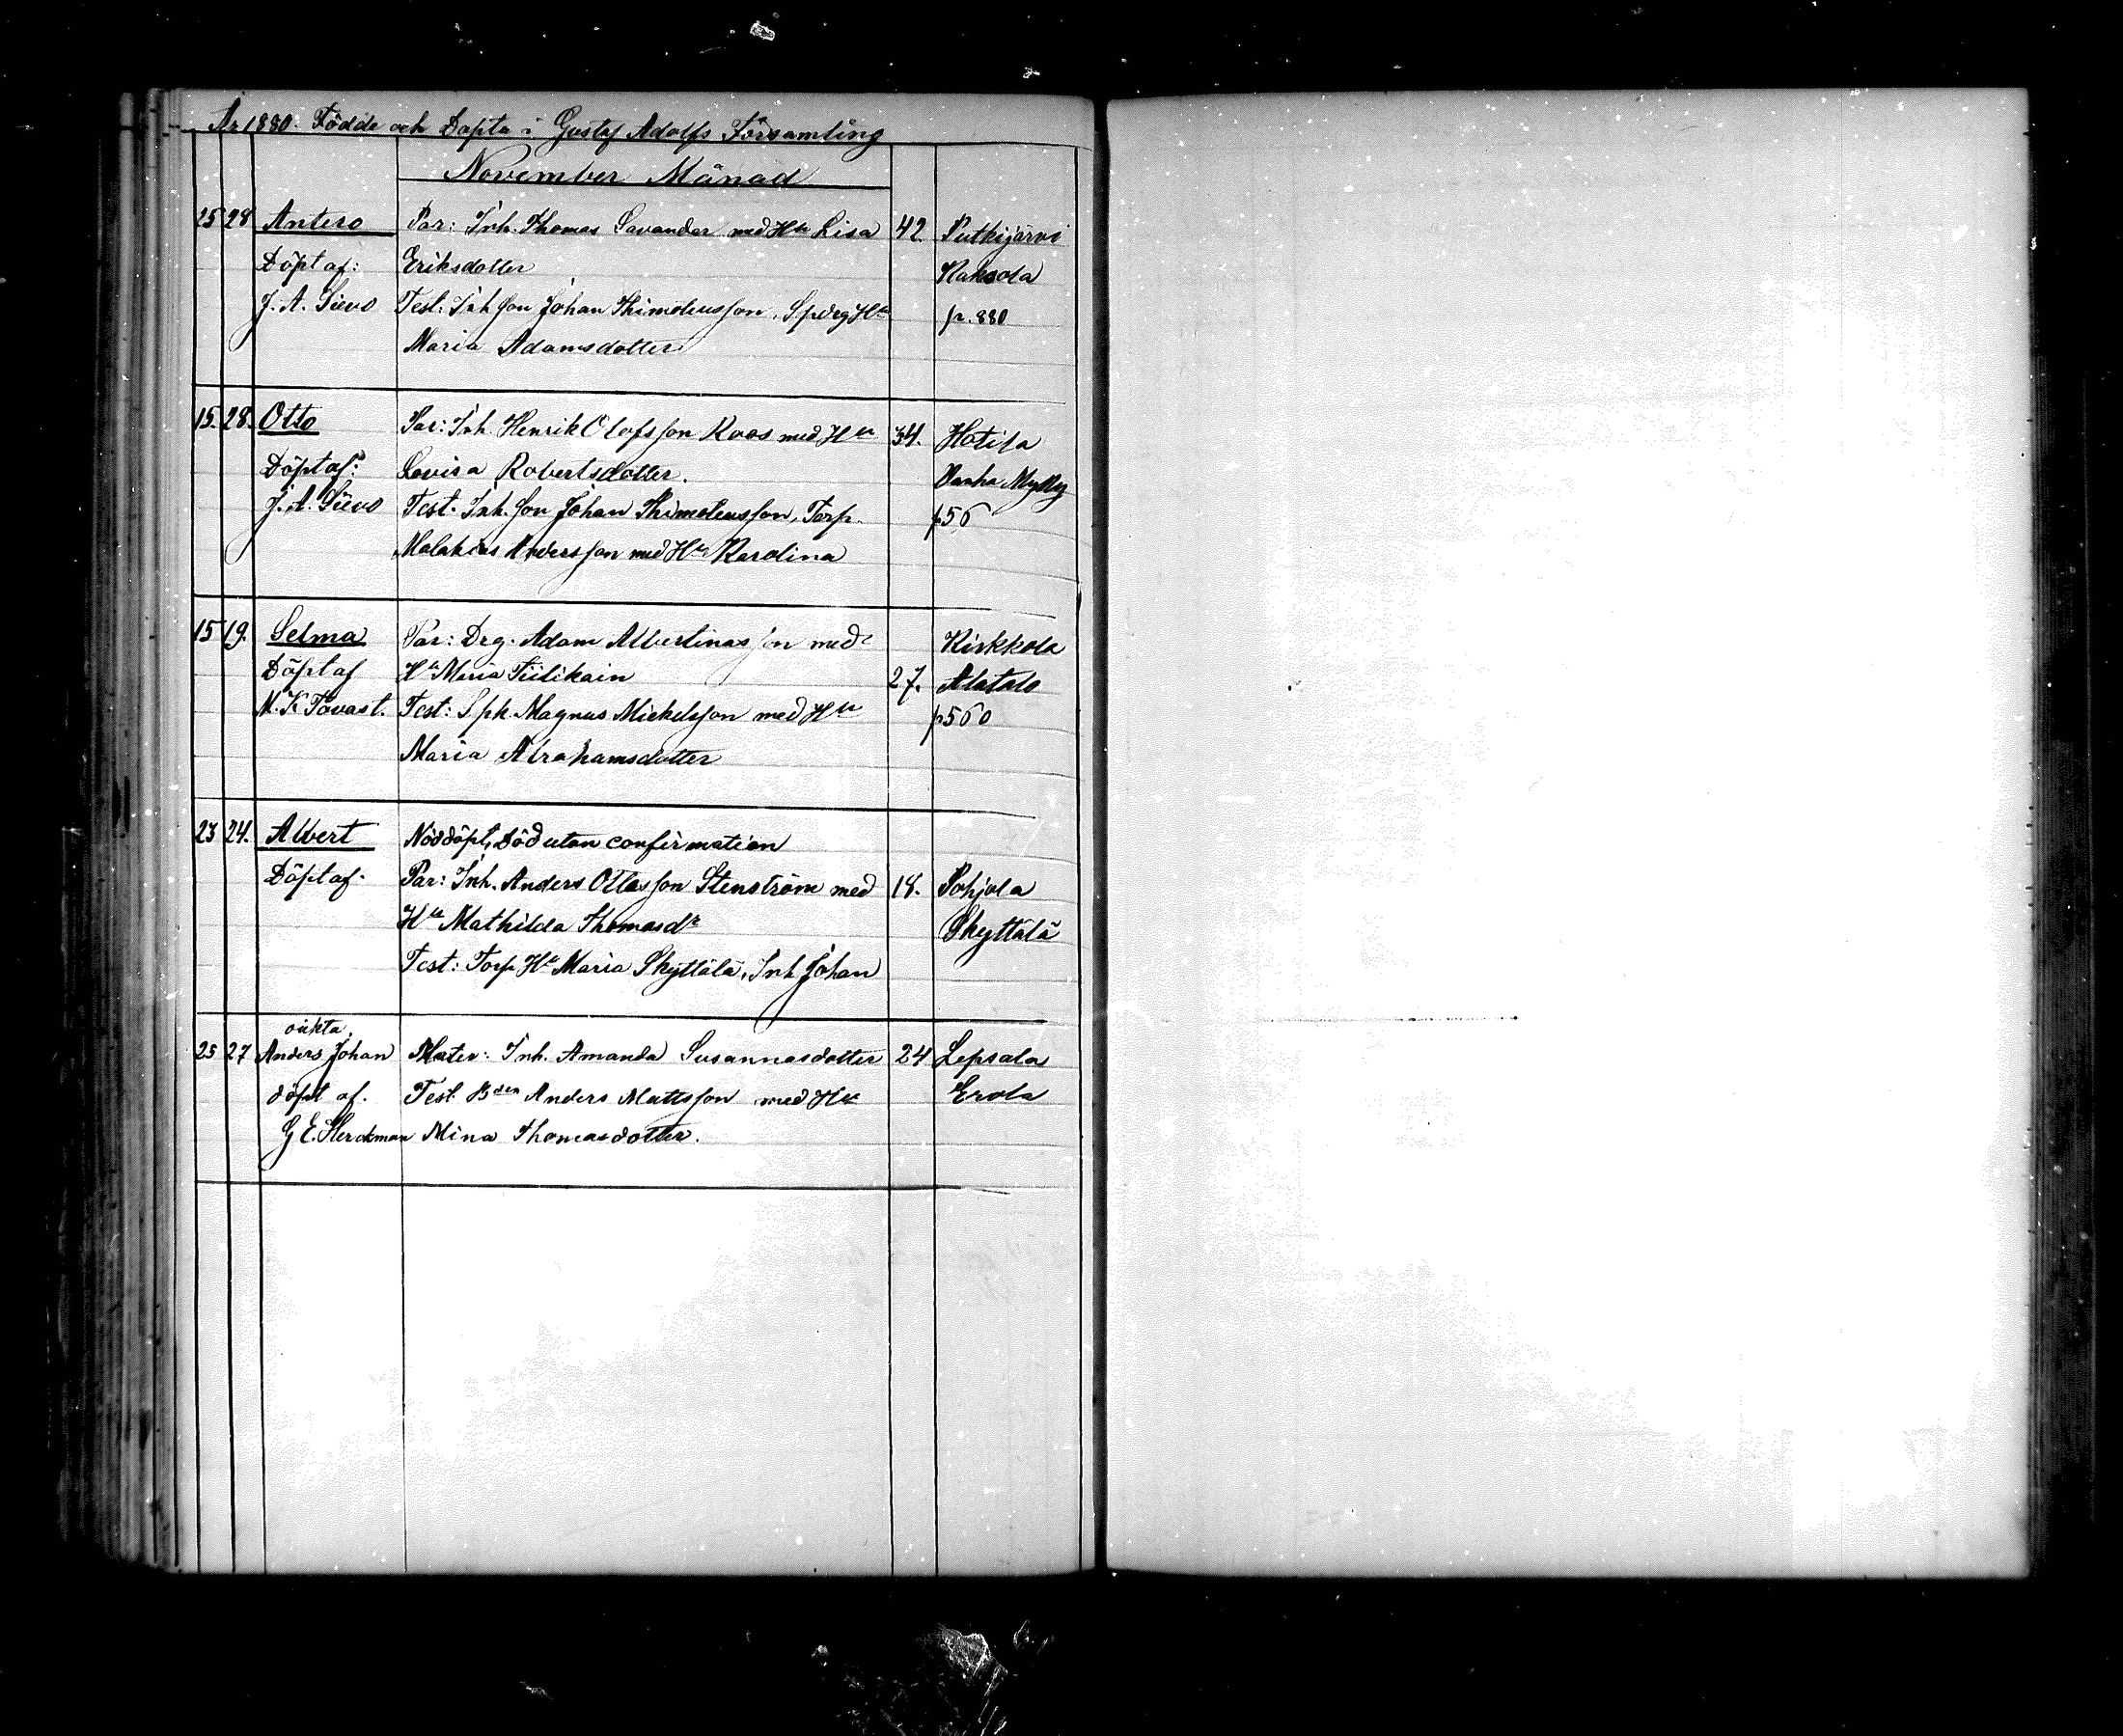 År 1880. Födde och Döpta i Gustaf Adolfs Församling
November Månad
25 28 Antero Par: Inh. Thomas Savander med Hu Lisa 42. Putkijärvi
Döpt af: Eriksdotter Kaksola
J. A. Sievo Test. Inh son Johan Thimoteusson, Spdrg Hu p. 880
Maria Adamsdotter
15. 28. Otto Par: Inh. Henrik Olofsson Roos med Hu 34. Hotila
Döpt af: Lovisa Robertsdotter. Vanha Mylly
J. A. Sievo Test. Inh. son Johan Thimoteusson, Torp. p56
Malakias Andersson med Hu Karolina
15 19. Selma Par: Drg. Adam Albertinasson med Kirkkola
Döpt af Hu Maria Tiilikain 27. Alatalo
M. K Tavast. Test: Spk. Magnus Mickelsson med Hu p560
Maria Abrahamsdotter
23 24. Albert Nöddöpt, Död utan confirmation
Döpt af. Par: Inh. Anders Ottosson Stenström med 18. Pohjola
Hu Mathilda Thomasdr Skyttälä
Test: Torp Hu Maria Skyttälä, Inh Johan
oäkta.
25 27 Anders Johan Mater: Inh. Amanda Susannasdotter 24 Lepsala
döpt af. Test. Bden Anders Mattsson med Hu Erola
G E. Herckman Mina Thomasdotter.